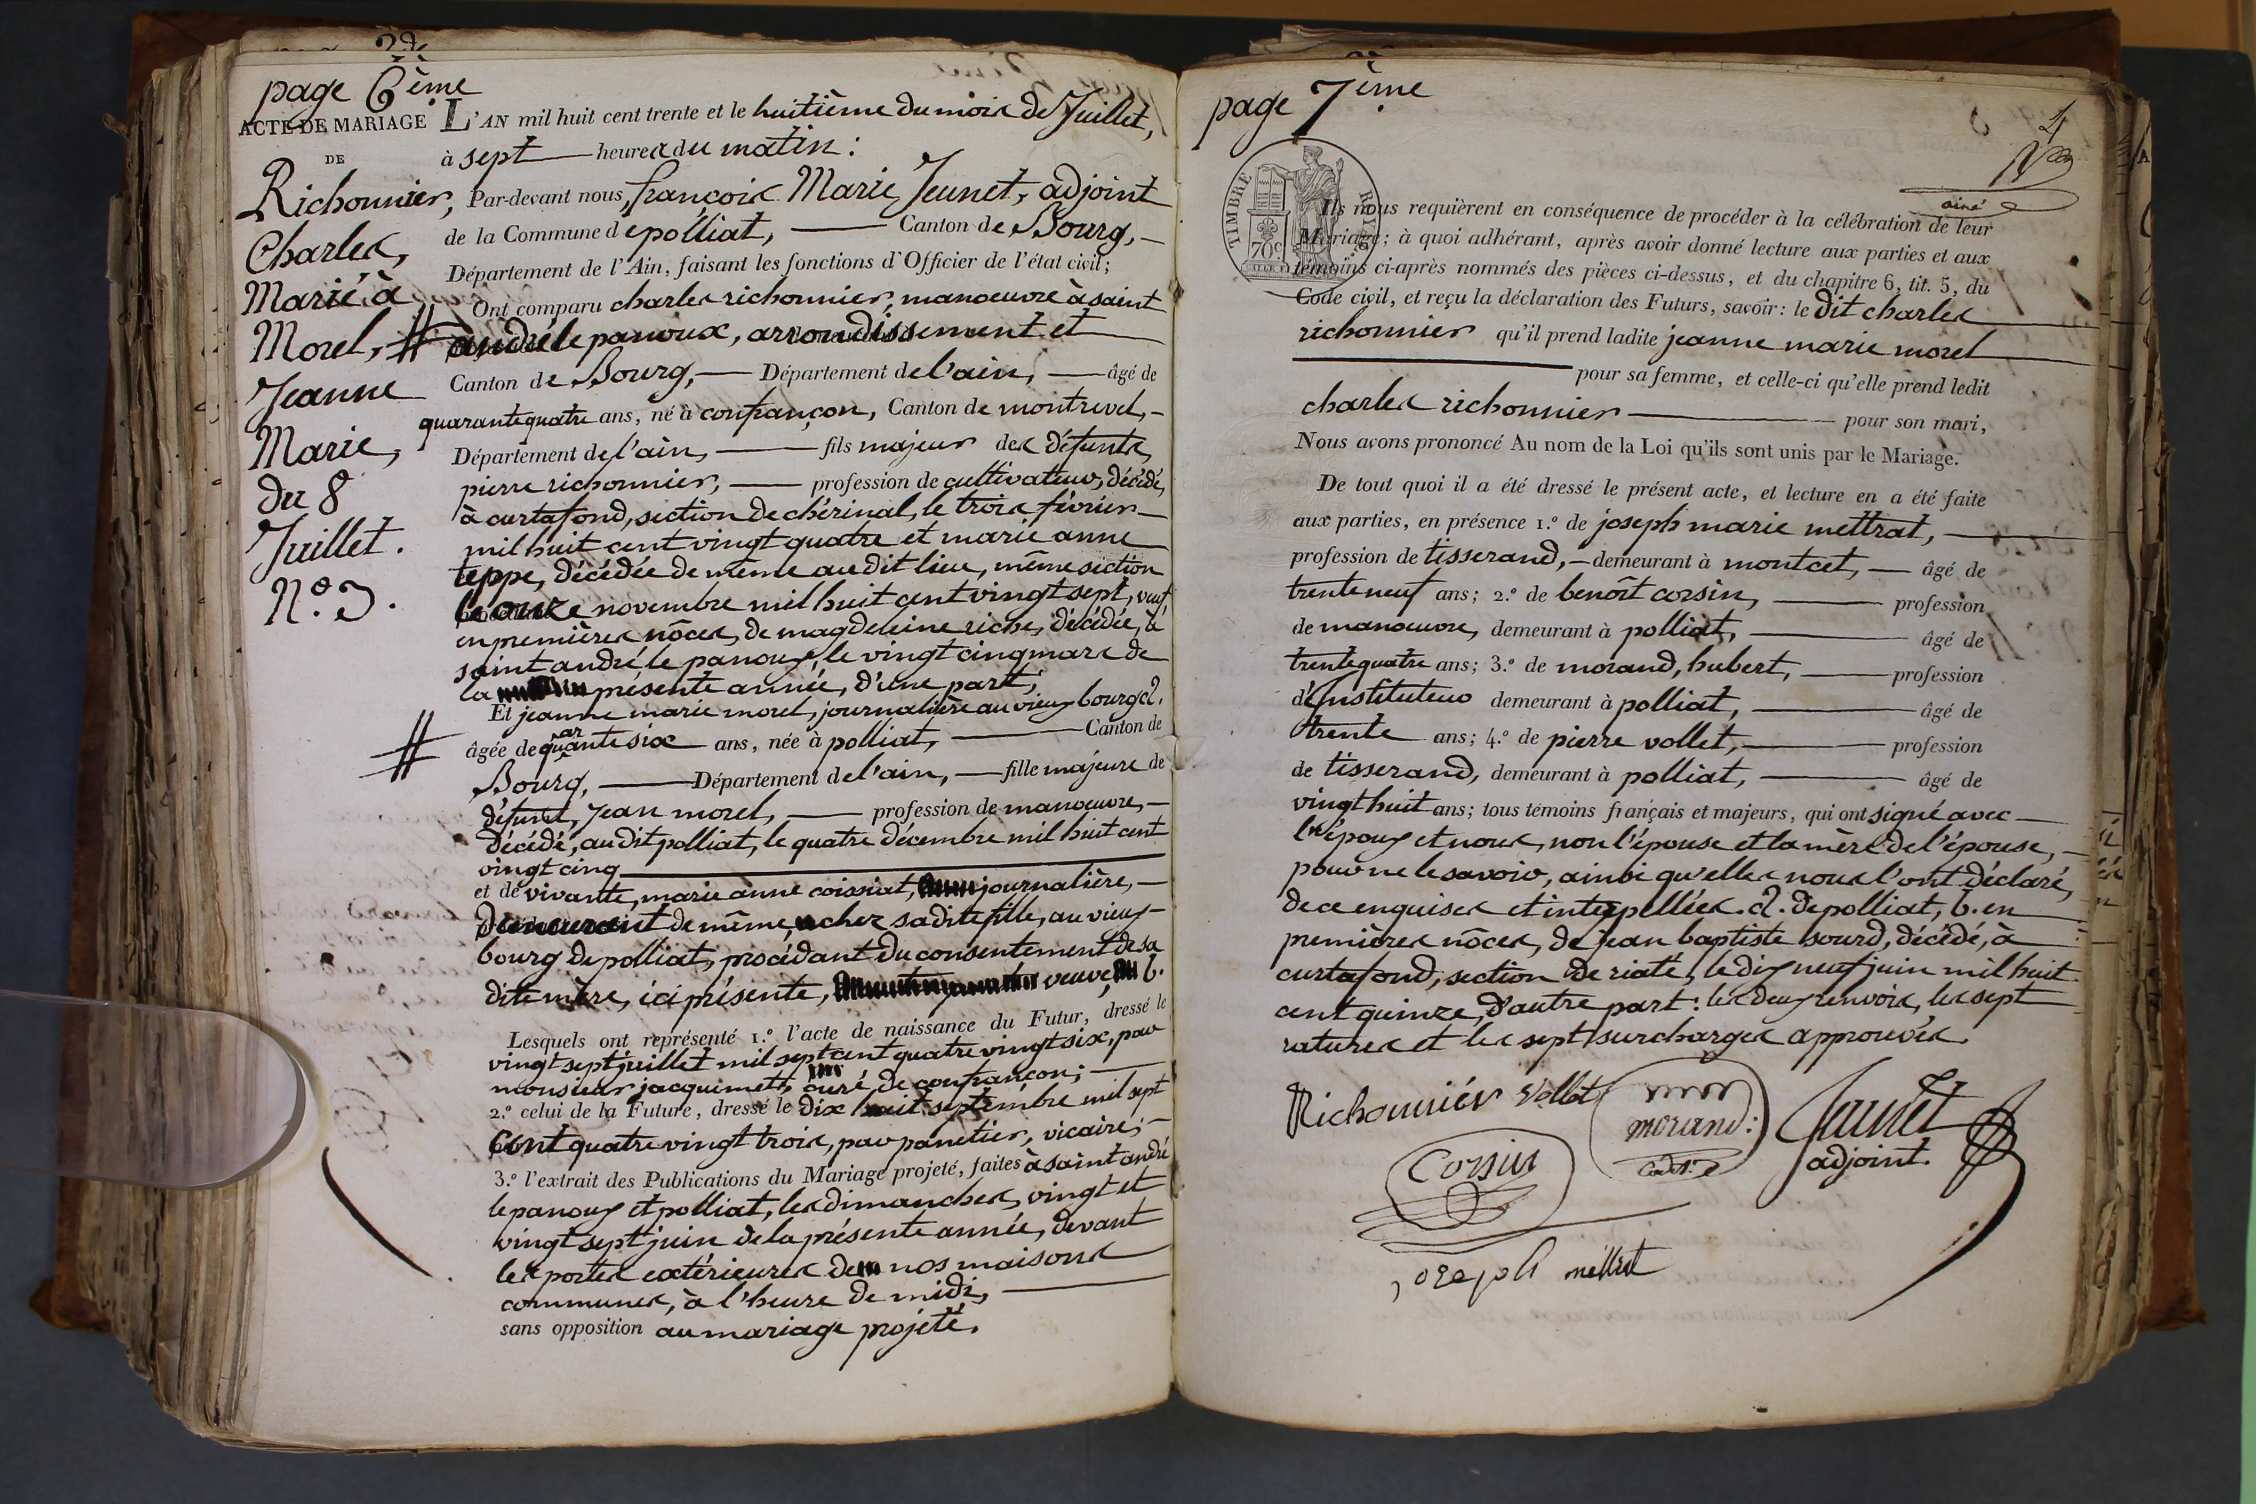 page 6ème
ACTE DE MARIAGE
DE
Richonnier,
Charles,
Marié à
Morel,
Jeanne
Marie,
du 8
Juillet.
N.º 3.
L'AN mil huit cent trente et le huitième du mois de Juillet,
à sept heures du matin :
Par-devant nous, françois Marie Jeunet, adjoint
de la Commune de polliat, Canton de Bourg,
Département de l'Ain, faisant les fonctions d'Officier de l'état civil;
Ont comparu charles richonnier, manoeuvre à saint
andré le panoux, arrondissement et
Canton de Bourg, Département de l'ain, âgé de
quarante quatre ans, né à confrançon, Canton de montrevel,
Département de l'ain, fils majeur des défunts,
pierre richonnier, profession de cultivateur, décédé,
à curtafond, section de chérinal, le trois février
mil huit cent vingt quatre et marie anne
teppe, décédée de même au dit lieu, même section
le onze novembre mil huit cent vingt sept, veuf
en premières nôces, de magdeleine riche, décédée, à
saint andré le panoux, le vingt cinq mars de
la présente année, d'une part;
Et jeanne marie morel, journalière au vieux bourg a.
âgée de quarante six ans, née à polliat, Canton de
Bourg, Département de l'ain, fille majeure de
défunt, Jean morel, profession de manoeuvre,
décédé, au dit polliat, le quatre décembre mil huit cent
vingt cinq
et de vivante, marie anne coissiat, journalière,
demeurant de même, chez sa dite fille, au vieux
bourg de polliat, procédant du consentement de sa
dite mère, ici présente, veuve, b.
Lesquels ont représenté 1.º l'acte de naissance du Futur, dressé le
vingt sept juillet mil sept cent quatre vingt six, par
monsieur jacquimet, curé de confrançon;
2.º celui de la Future, dressé le dix huit septembre mil sept
cent quatre vingt trois, par panetier, vicaire;
3.º l'extrait des Publications du Mariage projeté, faites à saint andré
le panoux et polliat, les dimanches, vingt et
vingt sept juin de la présente année, devant
les portes extérieures de nos maisons
communes, à l'heure de midi,
sans opposition au mariage projeté.
page 7ème
TIMBRE ROYAL
70c
ainé
Ils nous requièrent en conséquence de procéder à la célébration de leur
Mariage; à quoi adhérant, après avoir donné lecture aux parties et aux
témoins ci-après nommés des pièces ci-dessus, et du chapitre 6, tit. 5, du
Code civil, et reçu la déclaration des Futurs, savoir: le dit charles
richonnier qu'il prend ladite jeanne marie morel
pour sa femme, et celle-ci qu'elle prend ledit
charles richonnier pour son mari,
Nous avons prononcé Au nom de la Loi qu'ils sont unis par le Mariage.
De tout quoi il a été dressé le présent acte, et lecture en a été faite
aux parties, en présence 1.º de joseph marie mettrat,
profession de tisserand, demeurant à montcet, âgé de
trente neuf ans; 2.º de benoît corsin, profession
de manoeuvre, demeurant à polliat, âgé de
trente quatre ans; 3.º de morand, hubert, profession
d'Instituteur demeurant à polliat, âgé de
trente ans; 4.º de pierre vollet, profession
de tisserand, demeurant à polliat, âgé de
vingt huit ans; tous témoins français et majeurs, qui ont signé avec
l'époux et nous, non l'épouse et la mère de l'épouse,
pour ne le savoir, ainsi qu'elles nous l'ont déclaré,
de ce enquises et interpellées. a. de polliat, b. en
premières nôces, de jean baptiste sourd, décédé, à
curtafond, section de riaté, le dix neuf juin mil huit
cent quinze, d'autre part : les deux renvois, les sept
ratures et les sept surcharges approuvés.
Richonniér Vollet
morand:
Jeunet
adjoint.
Corsin
joseph mettrat